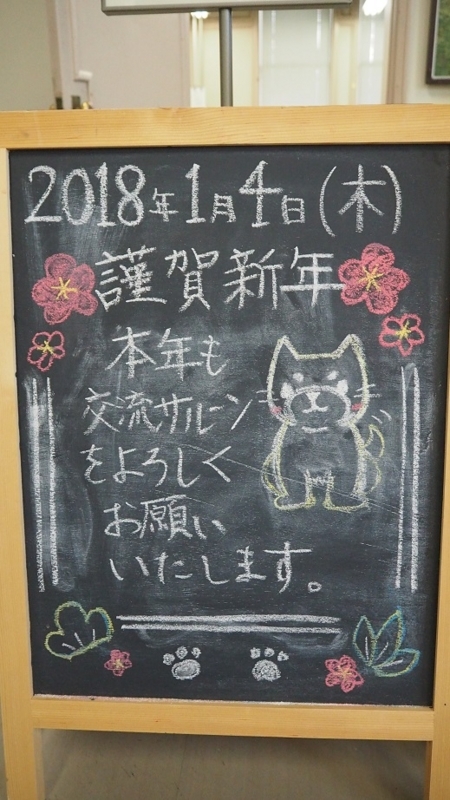 2018年1月4日(木)
謹賀新年
本年も
交流サルーン
をよろしく
お願い
いたします。